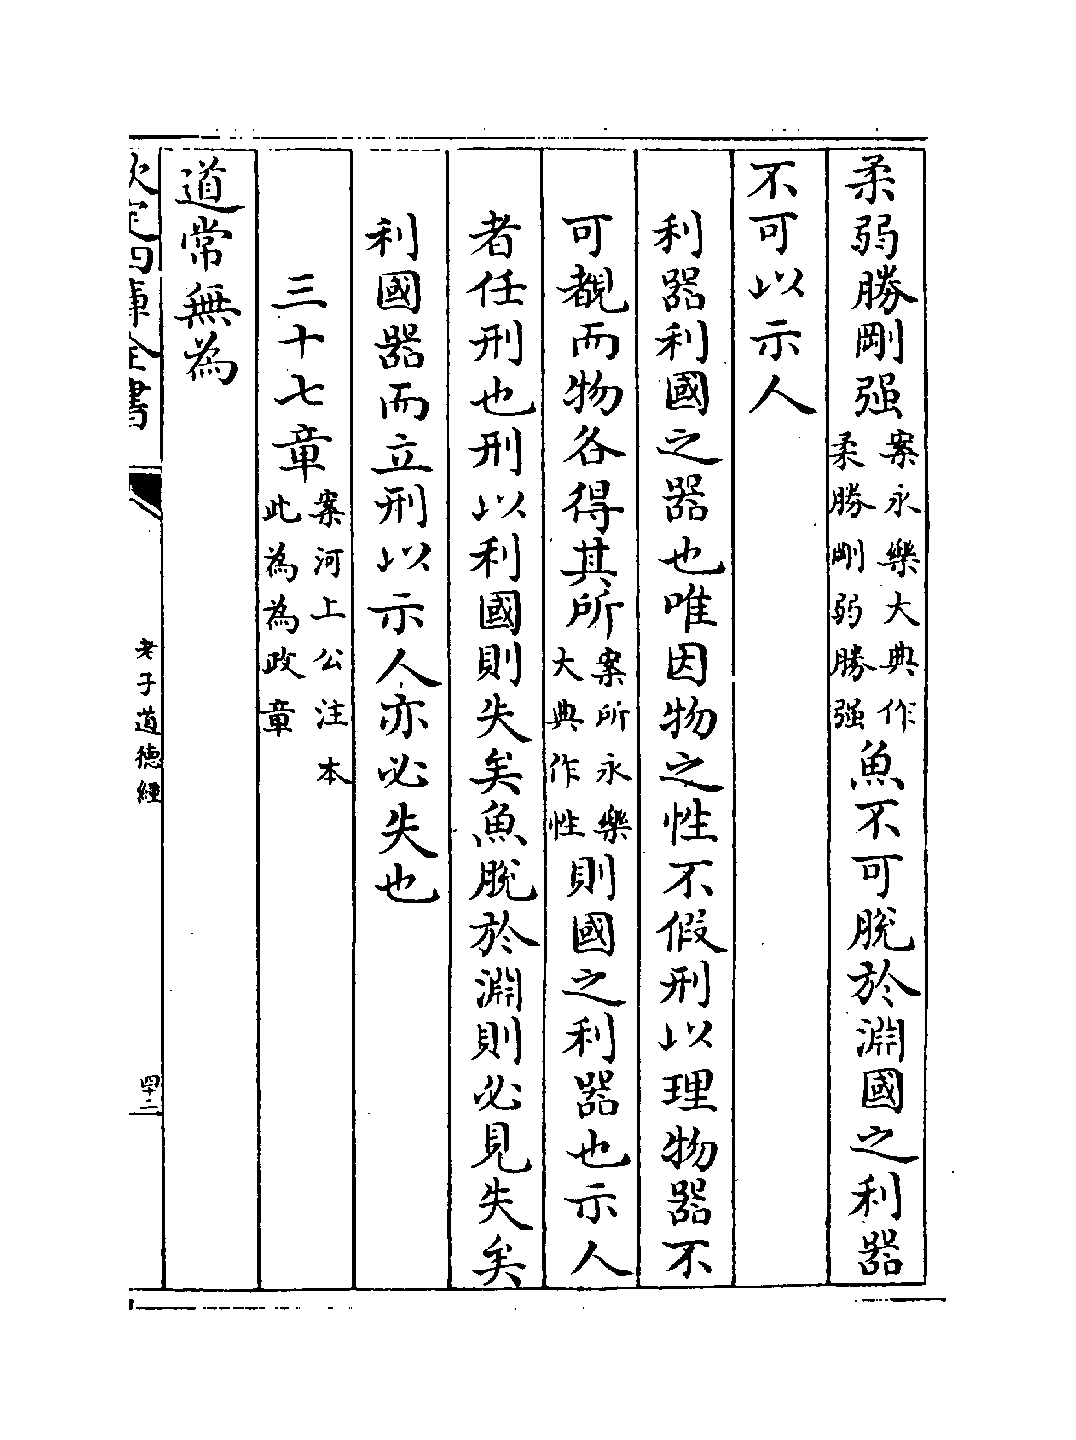 柔弱勝剛强案永樂大典作柔勝剛弱勝强魚不可脫於淵國之利器
不可以示人
利器利國之器也唯因物之性不假刑以理物器不
可覩而物各得其所案所永樂大典作性則國之利器也示人
者任刑也刑以利國則失矣魚脫於淵則必見失矣
利國器而立刑以示人亦必失也
三十七章案河上公注本此為為政章
道常無為
欽定四庫全書
老子道德經
四十二